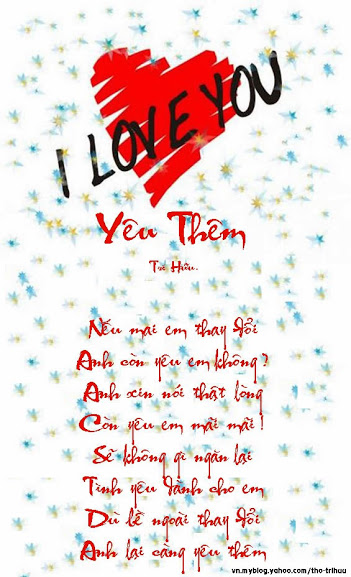 I LOVE YOU
Yêu Thêm
Trí Hữu.
Nếu mai em thay đổi
Anh còn yêu em không?
Anh xin nói thật lòng
Còn yêu em mãi mãi!
Sẽ không gì ngăn lại
Tình yêu dành cho em
Dù bề ngoài thay đổi
Anh lại càng yêu thêm
vn.myblog.yahoo.com/tho-trihuu